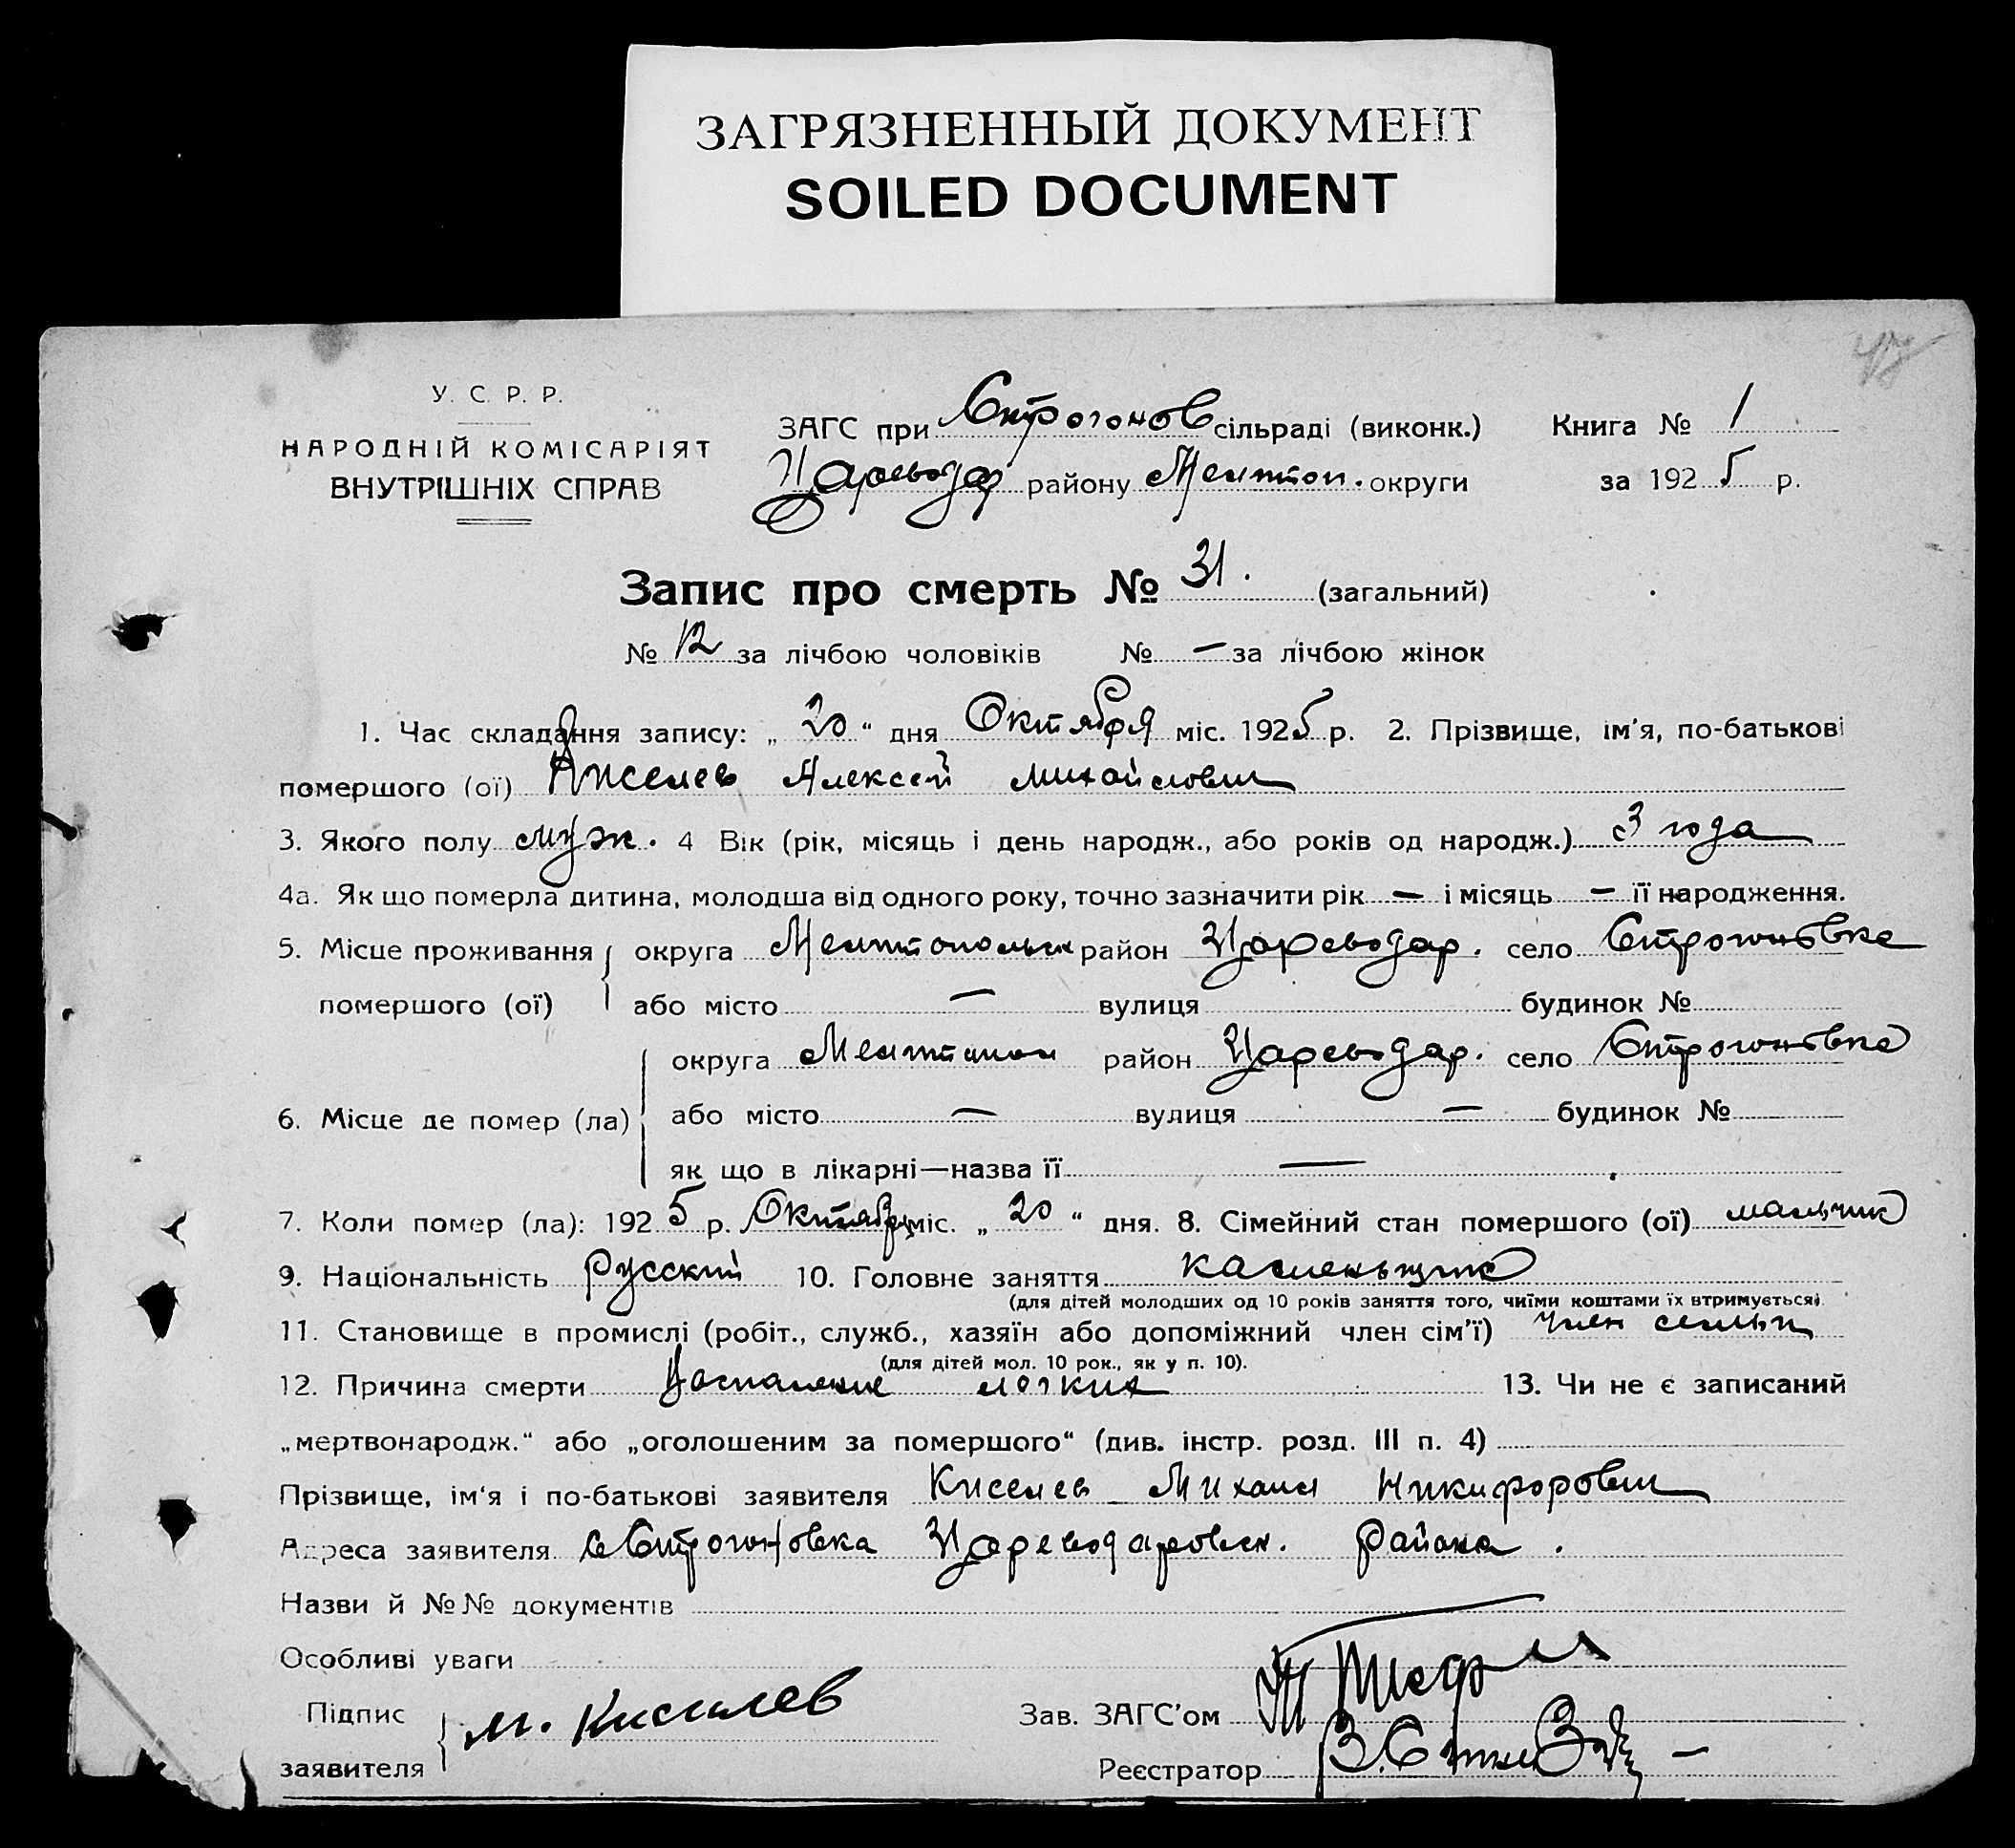 ЗАГРЯЗНЕННЫЙ ДОКУМЕНТ
SOILED DOCUMENT
У. С. Р. Р.
НАРОДНІЙ КОМІСАРІЯТ
ВНУТРІШНІХ СПРАВ
ЗАГС при Строгонов сільраді (виконк.)
Цареводар району Мелитоп. округи
Книга № 1
за 1925 р.
Запис про смерть № 31. (загальний)
№ 12 за лічбою чоловіків № — за лічбою жінок
1. Час складання запису: „20“ дня Октября міс. 1925 р. 2. Прізвище, ім'я, по-батькові
помершого (ої) Киселев Алексей Михайлович
3. Якого полу муж. 4 Вік (рік, місяць і день народж., або років од народж.) 3 года
4а. Як що померла дитина, молодша від одного року, точно зазначити рік — і місяць — її народження.
5. Місце проживання округа Мелитопольск район Цареводар. село Строгоновка
помершого (ої) або місто — вулиця будинок №
округа Мелитопол район Цареводар. село Строгоновка
6. Місце де помер (ла) або місто — вулиця — будинок №
як що в лікарні—назва її —
7. Коли помер (ла): 1925 р. Октября міс. „20“ дня. 8. Сімейний стан помершого (ої) мальчик
9. Національність Русский 10. Головне заняття каменьщик
(для дітей молодших од 10 років заняття того, чиїми коштами їх втримується)
11. Становище в промислі (робіт., служб., хазяїн або допоміжний член сім'ї) член семьи
(для дітей мол. 10 рок., як у п. 10).
12. Причина смерти Воспаление легких 13. Чи не є записаний
„мертвонародж.“ або „оголошеним за помершого“ (див. інстр. розд. III п. 4)
Прізвище, ім'я і по-батькові заявителя Киселев Михаил Никифорович
Адреса заявителя с Строгоновка Цареводаровск. Района.
Назви й №№ документів
Особливі уваги
Підпис заявителя М. Киселев
Зав. ЗАГС'ом
Реєстратор